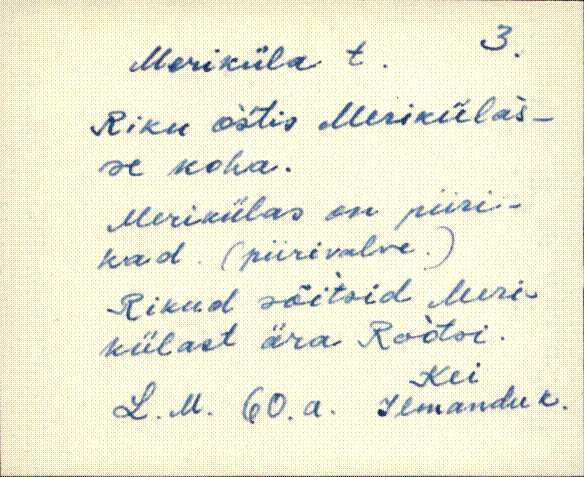 Meriküla t. 3.
Riku òstis Merikülàs-
se koha.
Merikülas on piiri-
kad. (piirivalve.)
Rikud sõitsid Meri-
külast ära Roòtsi.
Kei
L. M. 60. a. Ilmanduk.